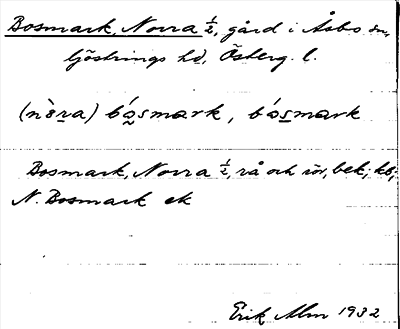 Bosmark, Norra ½, gård i Åsbo sn,
Göstrings hd, Österg. l.
(nò̀ra) bósmark, bósmark
Bosmark, Norra ½, rå och rör, bek; kb;
N. Bosmark ek
Erik Alm 1932